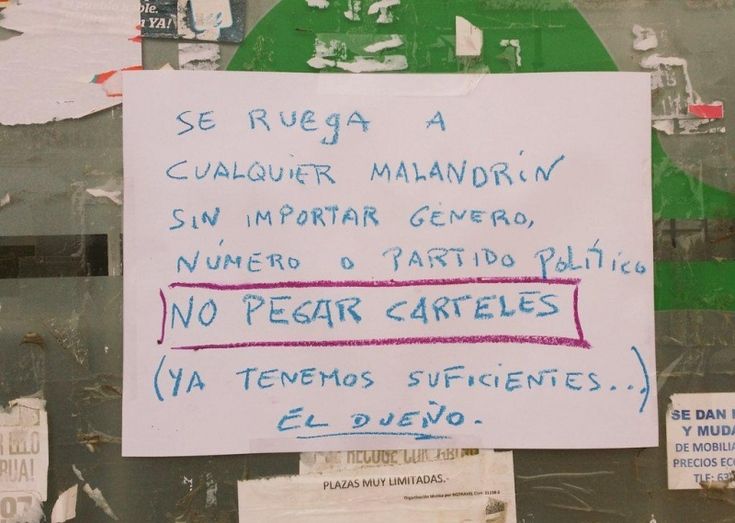 YA!
SE RUEGA A
CUALQUIER MALANDRÍN
SIN IMPORTAR GÉNERO,
NÚMERO O PARTIDO POLÍTICO
NO PEGAR CARTELES
(YA TENEMOS SUFICIENTES...)
EL DUEÑO.
PLAZAS MUY LIMITADAS.-
SE DAN
Y MUDA
DE MOBILIA
PRECIOS ECO
TLF: 63